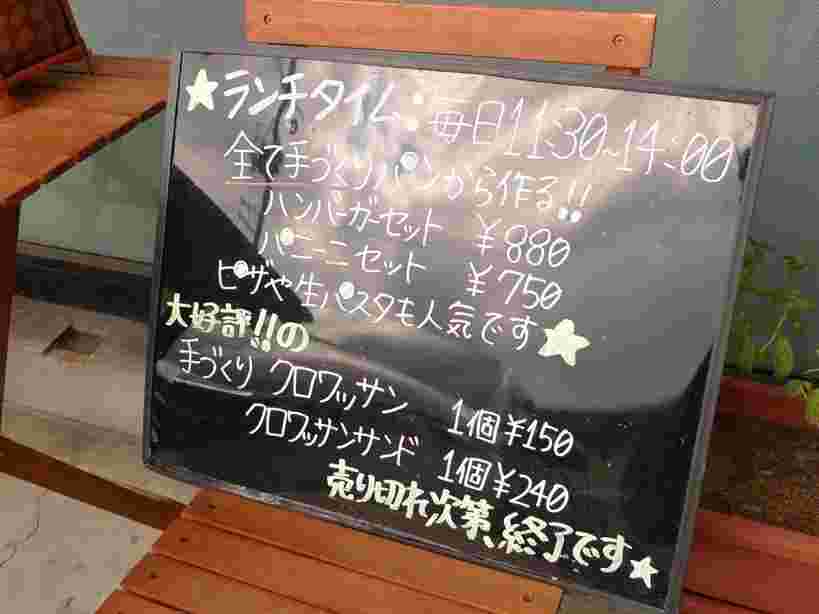 ★ランチタイム:毎日11:30~14:00
全て手づくりパンから作る!!
ハンバーガーセット ¥880
パニーニセット ¥750
ピザや生パスタも人気です★
大好評!!の
手づくり クロワッサン 1個¥150
クロワッサンサンド 1個¥240
売り切れ次第、終了です★